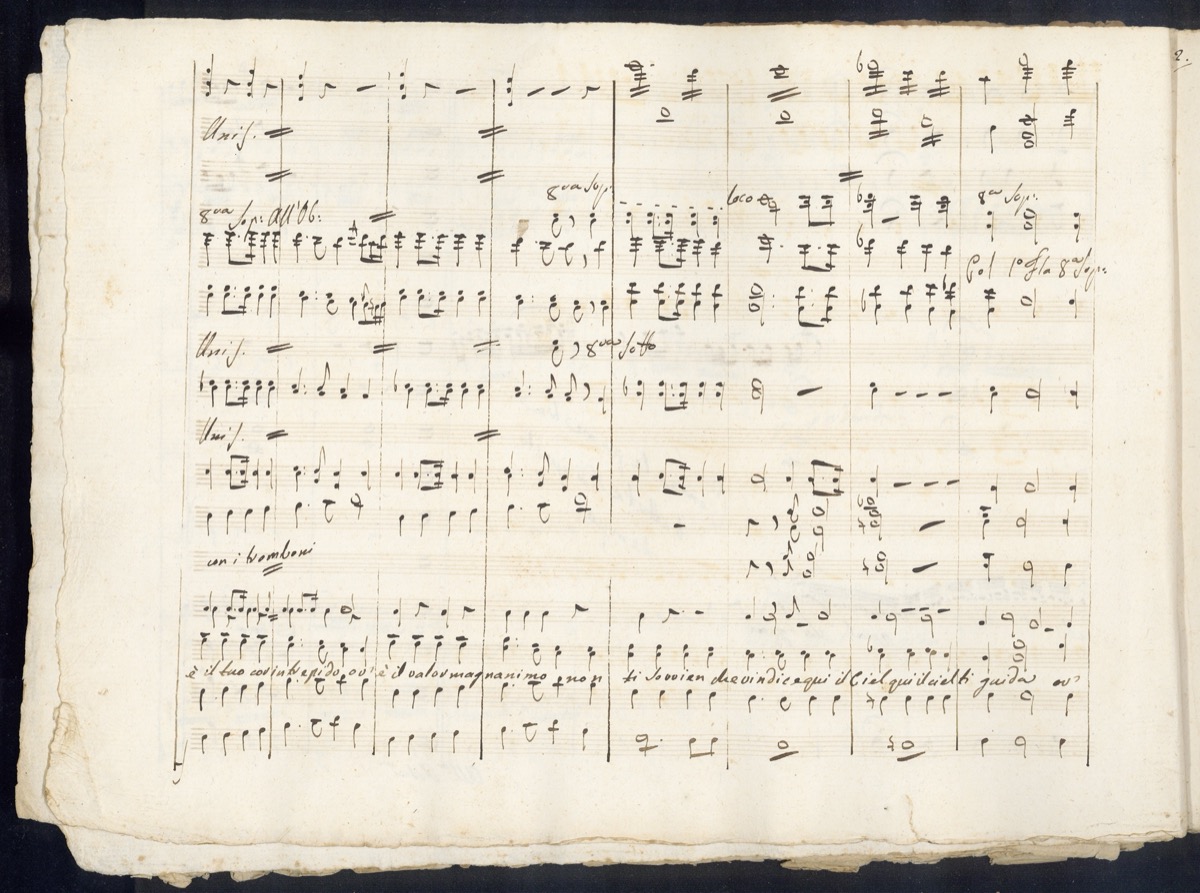 2.
Unis.
8va Sop:
loco
8va Sop: All'Ob:
8a Sop:
Col 1o Fla 8a Sop:
Unis.
8va Sotto
Unis.
con i tromboni
è il tuo cor intrepido ov' è il valor magnanimo non ti sovvien che vindice qui il Ciel qui il ciel ti guida ov'